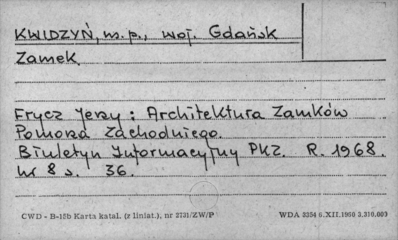 KWIDZYŃ, m.p., woj. Gdańsk
Zamek.
Frycz Jerzy: Architektura Zamków
Pomorza Zachodniego.
Biuletyn Informacyjny PKZ. R. 1968.
nr 8 s. 36.
CWD - B-15b Karta katal. (z liniat.), nr 2731/ZW/P
WDA 3354 6.XII.1960 3.310.003